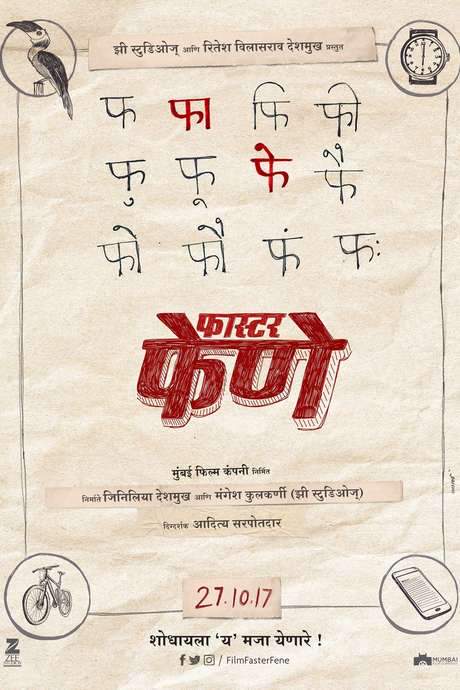 झी स्टुडिओज् आणि रितेश विलासराव देशमुख प्रस्तुत
फ फा फि फी
फु फू फे फै
फो फौ फं फः
फास्टर
फेणे
मुंबई फिल्म कंपनी निर्मित
निर्माते जिनिलिया देशमुख आणि मंगेश कुलकर्णी (झी स्टुडिओज्)
दिग्दर्शक आदित्य सरपोतदार
27.10.17
शोधायला ‘य’ मजा येणारे !
/ FilmFasterFene
ZEE
MUMBAI